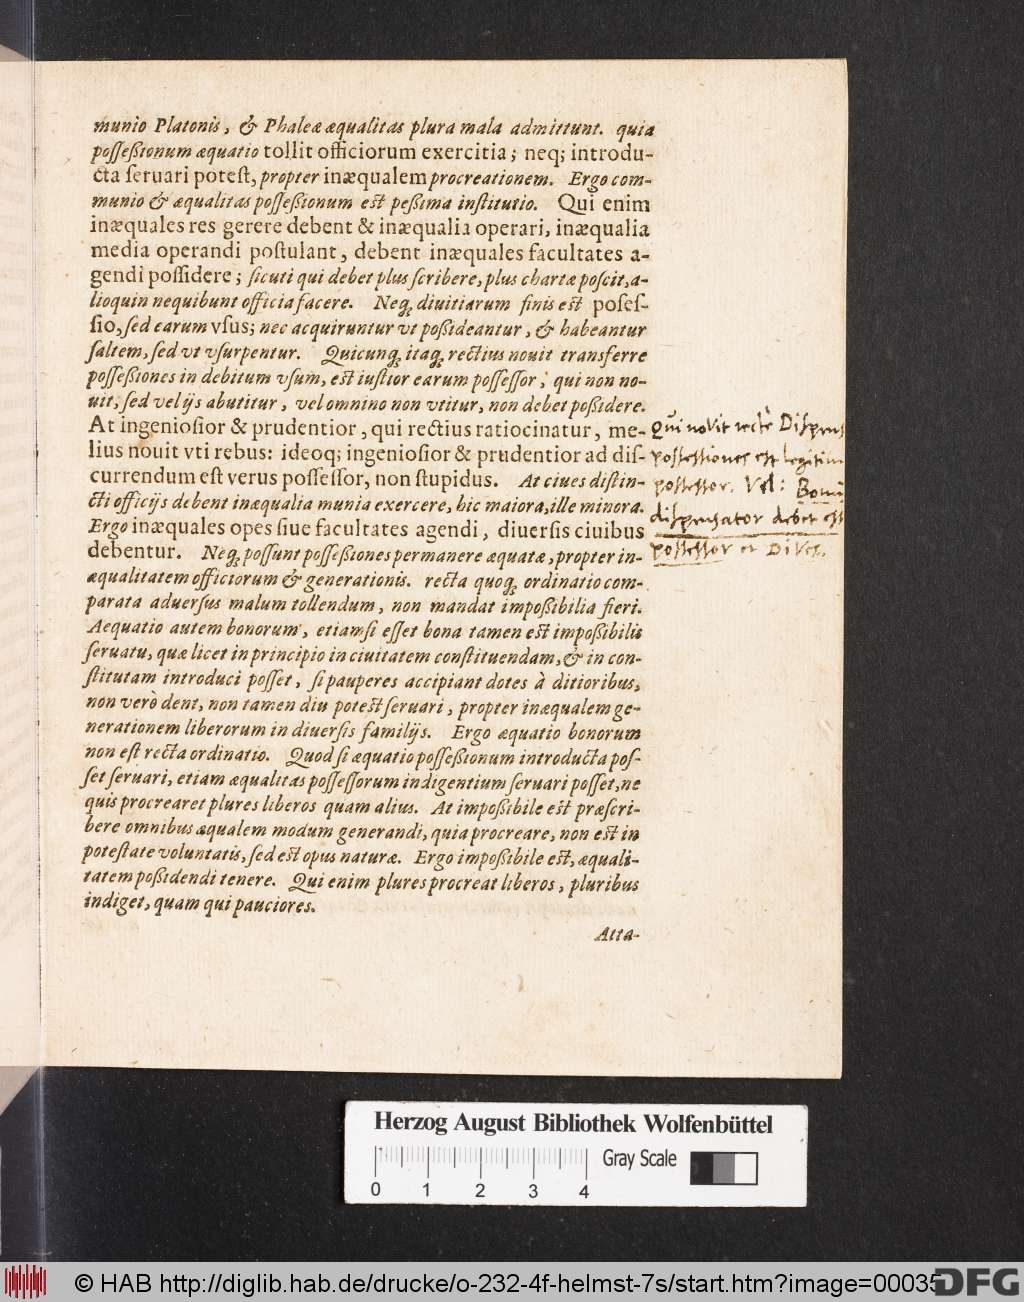 munio Platonis, & Phaleæ æqualitas plura mala admittunt. quia
poſſeßionum æquatio tollit officiorum exercitia; neq; introdu-
cta ſeruari poteſt, propter inæqualem procreationem. Ergo com-
munio & æqualitas poſſeßionum est peßima inſtitutio. Qui enim
inæquales res gerere debent & inæqualia operari, inæqualia
media operandi poſtulant, debent inæquales facultates a-
gendi poſſidere; ſicuti qui debet plus ſcribere, plus chartæ poſcit, a-
lioquin nequibunt officia facere. Neq; diuitiarum finis est poſeſ-
ſio, ſed earum vſus; nec acquiruntur vt poßideantur, & habeantur
ſaltem, ſed vt vſurpentur. Quicunq; itaq; rectius nouit transferre
poſſeßiones in debitum vſum, est iuſtior earum poſſeſſor; qui non no-
uit, ſed vel ijs abutitur, vel omnino non vtitur, non debet poßidere.
At ingenioſior & prudentior, qui rectius ratiocinatur, me-
lius nouit vti rebus: ideoq; ingenioſior & prudentior ad diſ-
currendum eſt verus poſſeſſor, non ſtupidus. At ciues diſtin-
cti officijs debent inæqualia munia exercere, hic maiora, ille minora.
Ergo inæquales opes ſiue facultates agendi, diuerſis ciuibus
debentur. Neq; poſſunt poſſeßiones permanere æquatæ, propter in-
æqualitatem officiorum & generationis. recta quoq; ordinatio com-
parata aduerſus malum tollendum, non mandat impoßibilia fieri.
Aequatio autem bonorum, etiamſi eſſet bona tamen est impoßibilis
ſeruatu, quæ licet in principio in ciuitatem conſtituendam, & in con-
ſtitutam introduci poſſet, ſi pauperes accipiant dotes à ditioribus,
non verò dent, non tamen diu potest ſeruari, propter inæqualem ge-
nerationem liberorum in diuerſis familijs. Ergo æquatio bonorum
non eſt recta ordinatio. Quod ſi æquatio poſſeßionum introducta poſ-
ſet ſeruari, etiam æqualitas poſſeſſorum indigentium ſeruari poſſet, ne
quis procrearet plures liberos quam alius. At impoßibile est præſcri-
bere omnibus æqualem modum generandi, quia procreare, non est in
poteſtate voluntatis, ſed est opus naturæ. Ergo impoßibile est, æquali-
tatem poßidendi tenere. Qui enim plures procreat liberos, pluribus
indiget, quam qui pauciores.
Atta-
Qui novit rectè Dispens
possessiones est legitim
possessor. Vel: Bonus
dispensator debet est
possessor et Dives.
Herzog August Bibliothek Wolfenbüttel
Gray Scale
0 1 2 3 4
© HAB http://diglib.hab.de/drucke/o-232-4f-helmst-7s/start.htm?image=00035
DFG